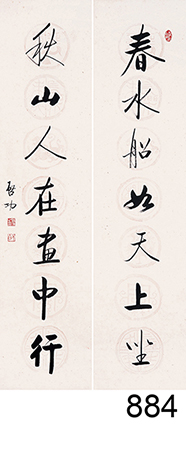 春水船如天上坐
秋山人在畫中行
啓功
884